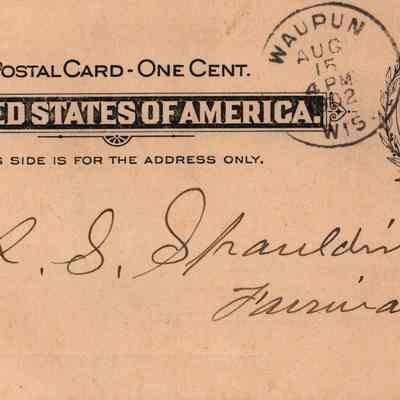 POSTAL CARD - ONE CENT.
ED STATES OF AMERICA.
S SIDE IS FOR THE ADDRESS ONLY.
WAUPUN
AUG
15
4 PM
02
WIS.
S. Spauldin